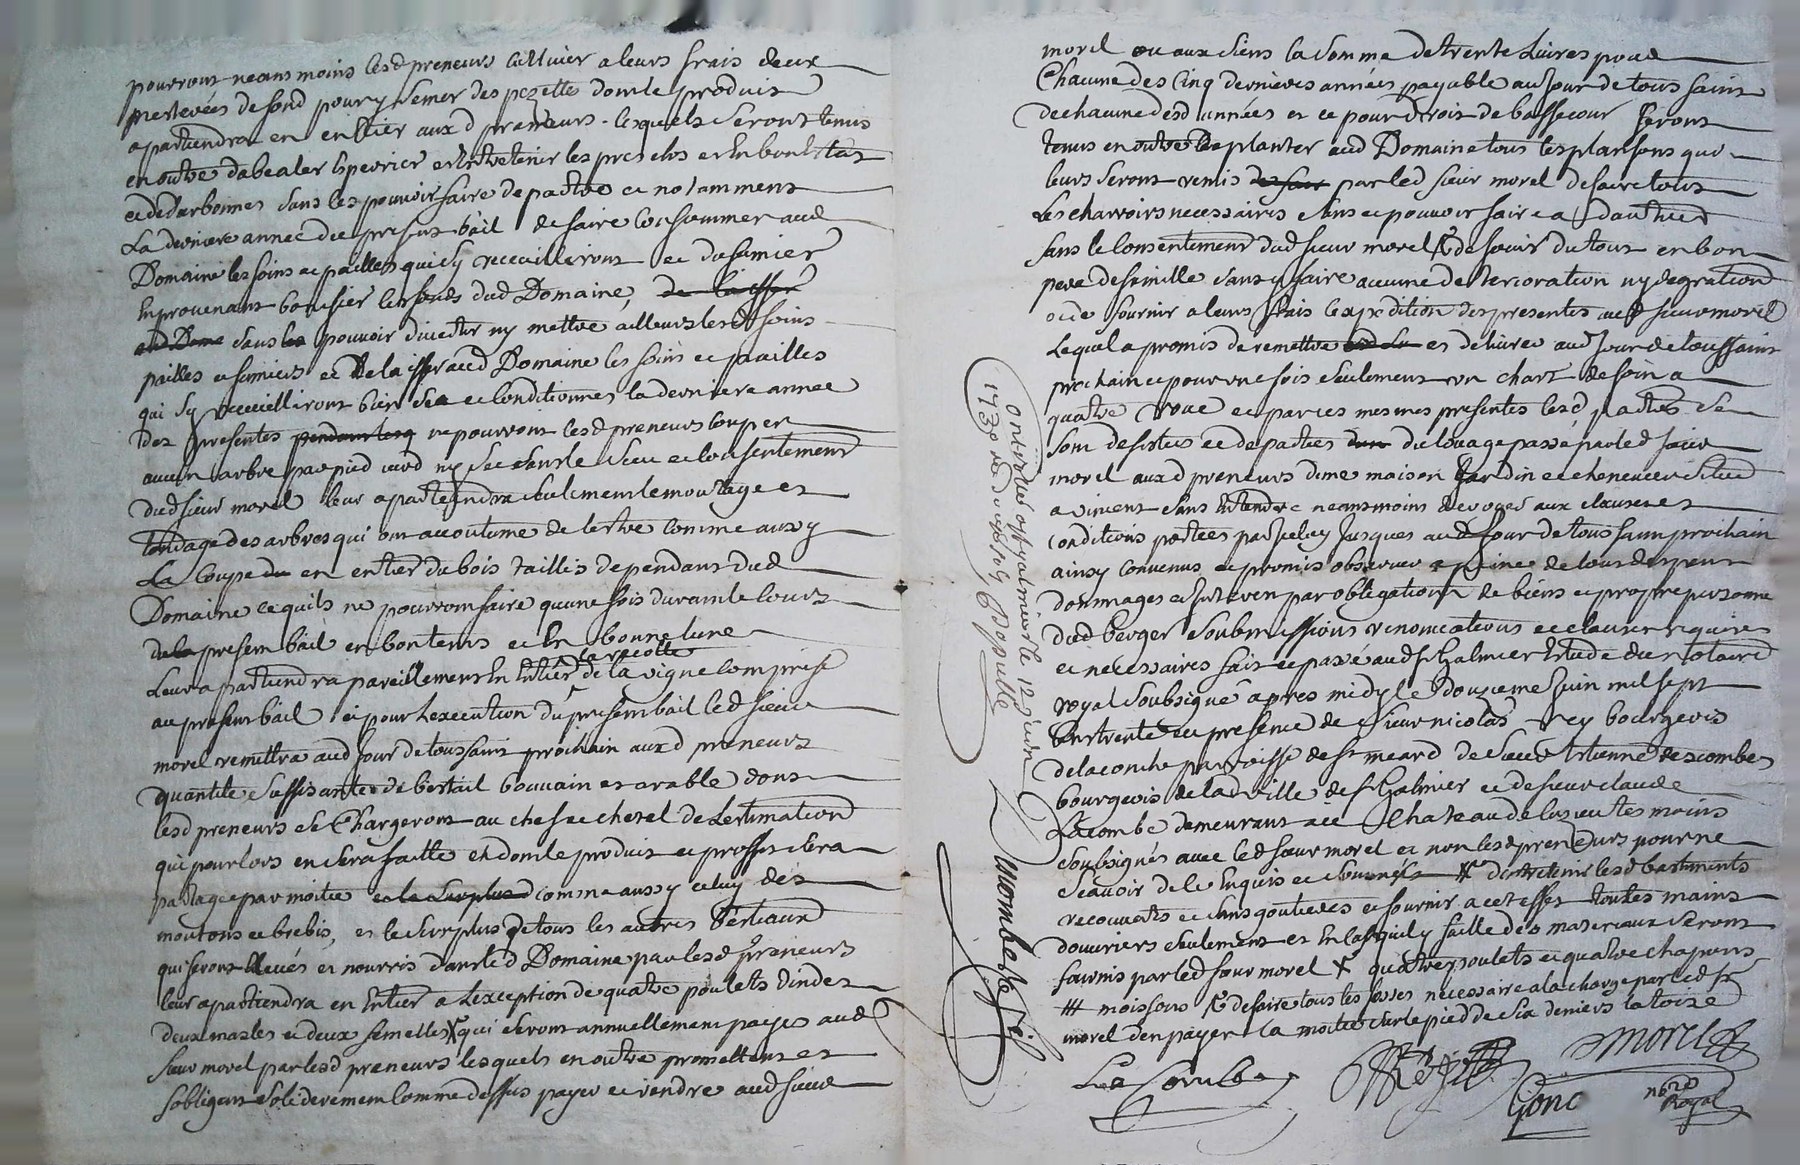 pourront neansmoins lesd preneurs cultiver a leurs frais deux
mestérées de fond pour y semer des pezettes dont le produit
apartiendra en entier auxd preneurs. lesquels seront tenus
en outre dabealer Epevrier et Entretenir les pres clos et En bon Estat
et dedarbonnes sans les pouvoir faire depaitre et notamment
La derniere année du present bail de faire consommer aud
Domaine les foins et pailles qui sy receuilliront et du fumier
En provenant bonifier les fonds dud Domaine, de laisser
aud Dome sans les pouvoir divertir ny mettre ailleurs lesd foins
pailles et fumiers et de laisser aud Domaine les foins et pailles
qui sy receuilliront bien sec et Conditionnes la derniere année
des presentes pendant lesq ne pourront lesd preneurs couper
aucun arbre par pied verd ny sec sans le sceu et consentement
dud sieur morel leur apartiendra seulement le montage et
tondage des arbres qui ont acoutume de lestre comme aussy
La Coupe du en entier du bois taillis dependant dud
Domaine ce quils ne pourront faire quune fois durant le cours
de la present bail en bon tems et En bonne lune
la recolte
Leur apartiendra pareillement En Entier de la vigne comprise
au present bail et pour lexecution du present bail led sieur
morel remettra aud Jour de toussaint prochain auxd preneurs
quantité suffisante de bestail bouvain et arable dont
lesd preneurs se Chargeront au chef et chetel de Lestimation
qui pour lors en sera faitte et dont le produit et proffit sera
partage par moitié et le surplus comme aussy celuy des
moutons et brebis, et le surplus de tous les autres Bestiaux
qui seront Elevés et nourris dans led Domaine par lesd preneurs
leur apartiendra en Entier a lexception de quatre poulets dindes
deux masles et deux femelles qui seront annuellement payes aud
sieur morel par lesd preneurs lesquels en outre promettent et
sobligent solidairement comme dessus payer et rendre aud sieur
morel ou aux siens la somme de trente Livres pour
Chacune des Cinq dernieres années payable au Jour de tous saint
de chacune desd années et ce pour droit de bassecour seront
tenus en outre de planter aud Domaine tous les plansons qui
leurs seront remis de faire par led sieur morel de faire tous
Les charroirs necessaires sans ce pouvoir faire a dautres
sans le Consentement dud sieur morel & de jouir du tout en bon
pere de famille sans y faire aucune deterioration ny degration
et de fournir a leurs frais lexpedition des presentes aud sieur morel
Lequel a promis de remettre et delivrer aud Jour de toussaint
prochain et pour une fois seulement un chart de foin a
quatre roue et par ces mesmes presentes lesd parties se
sont desistes et departies du louage passé par led sieur
morel auxd preneurs dune maison Jardin et chenevier situé
a viment sans Entendre neansmoins deroger aux clauses et
conditions portées par Iceluy Jusques aud Jour de toussaint prochain
ainsy convenus et promis observer a peine de tous despens
dommages et interest par obligations de biens et propre personne
dud berger soubmissions renonciations et clauses requises
et necessaires fait et passé aud St Galmier Etude du notaire
royal soubsigné apres midy le Douzieme Juin mil sept
Cens trente en presence de sieur nicolas rey bourgeois
de la conche parroisse de St meard de sieur Estienne descombes
bourgeois de lad ville de St Galmier et de sieur claude
Lacombe demeurant au Chateau de lusieu temoins
soubsignés avec led sieur morel et non lesd preneurs pour ne
scavoir de ce Enquis et Sommés # dentretenir lesd bastiments
recouverts et sans goutieres et fournir a cet effet toutes mains
douvriers seulement et En lasquil y faille des materiaux seront
fournis par led sieur morel # quatre poulets et quatre chapons
# moissons & de faire tous les fosses necessaire a la charge par led sr
morel den payer la moitie sur le pied de six deniers la toise
Morel
La Combe
Rey
Gonc
no.re Royal
Controllé a St galmier le 12e juin
1730 Res du
mombelle fil